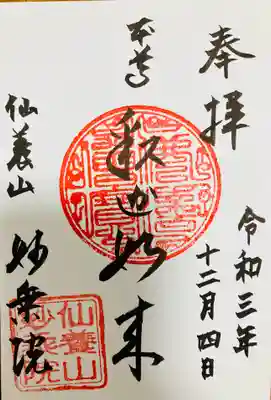 奉拝
令和三年
十二月四日
本尊
釈迦如来
仙養山
妙乗院
仙養山
妙乗院